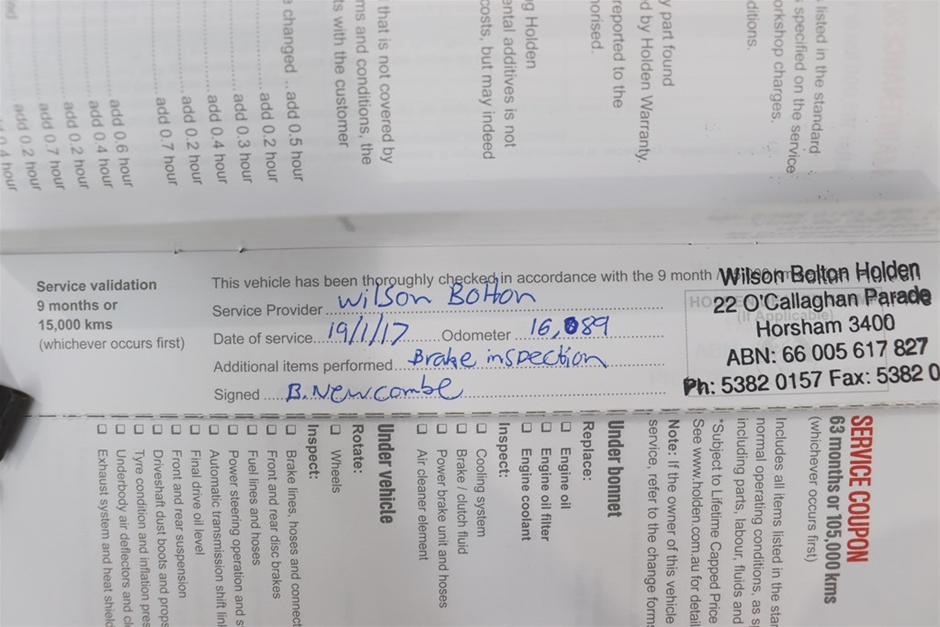 listed in the standard
specified on the service
workshop charges.
ditions.
y part found
d by Holden Warranty.
reported to the
horised.
g Holden
ental additives is not
costs, but may indeed
that is not covered by
ms and conditions, the
ts with the customer
e changed ..add 0.5 hour
add 0.2 hour
add 0.3 hour
add 0.4 hour
add 0.2 hour
add 0.7 hour
add 0.6 hour
add 0.4 hour
add 0.2 hour
add 0.7 hour
add 0.2 hour
0.4 hour
Service validation
9 months or
15,000 kms
(whichever occurs first)
This vehicle has been thoroughly checked in accordance with the 9 month /
Service Provider Wilson Bolton
Date of service 19/1/17 Odometer 16,089
Additional items performed Brake inspection
Signed B. Newcombe
Wilson Bolton Holden
22 O'Callaghan Parade
Horsham 3400
ABN: 66 005 617 827
Ph: 5382 0157 Fax: 5382 0
(If Applicable)
SERVICE COUPON
63 months or 105,000 kms
(whichever occurs first)
Includes all items listed in the star
normal operating conditions, as s
including parts, labour, fluids and
*Subject to Lifetime Capped Price
See www.holden.com.au for detail
Note: If the owner of this vehicle
service, refer to the change form
Under bonnet
Replace:
Engine oil
Engine oil filter
Engine coolant
Inspect:
Cooling system
Brake / clutch fluid
Power brake unit and hoses
Air cleaner element
Under vehicle
Rotate:
Wheels
Inspect:
Brake lines, hoses and connect
Front and rear disc brakes
Fuel lines and hoses
Power steering operation and s
Automatic transmission shift lin
Final drive oil level
Front and rear suspension
Driveshaft dust boots and props
Tyre condition and inflation pres
Underbody air deflectors and cl
Exhaust system and heat shield